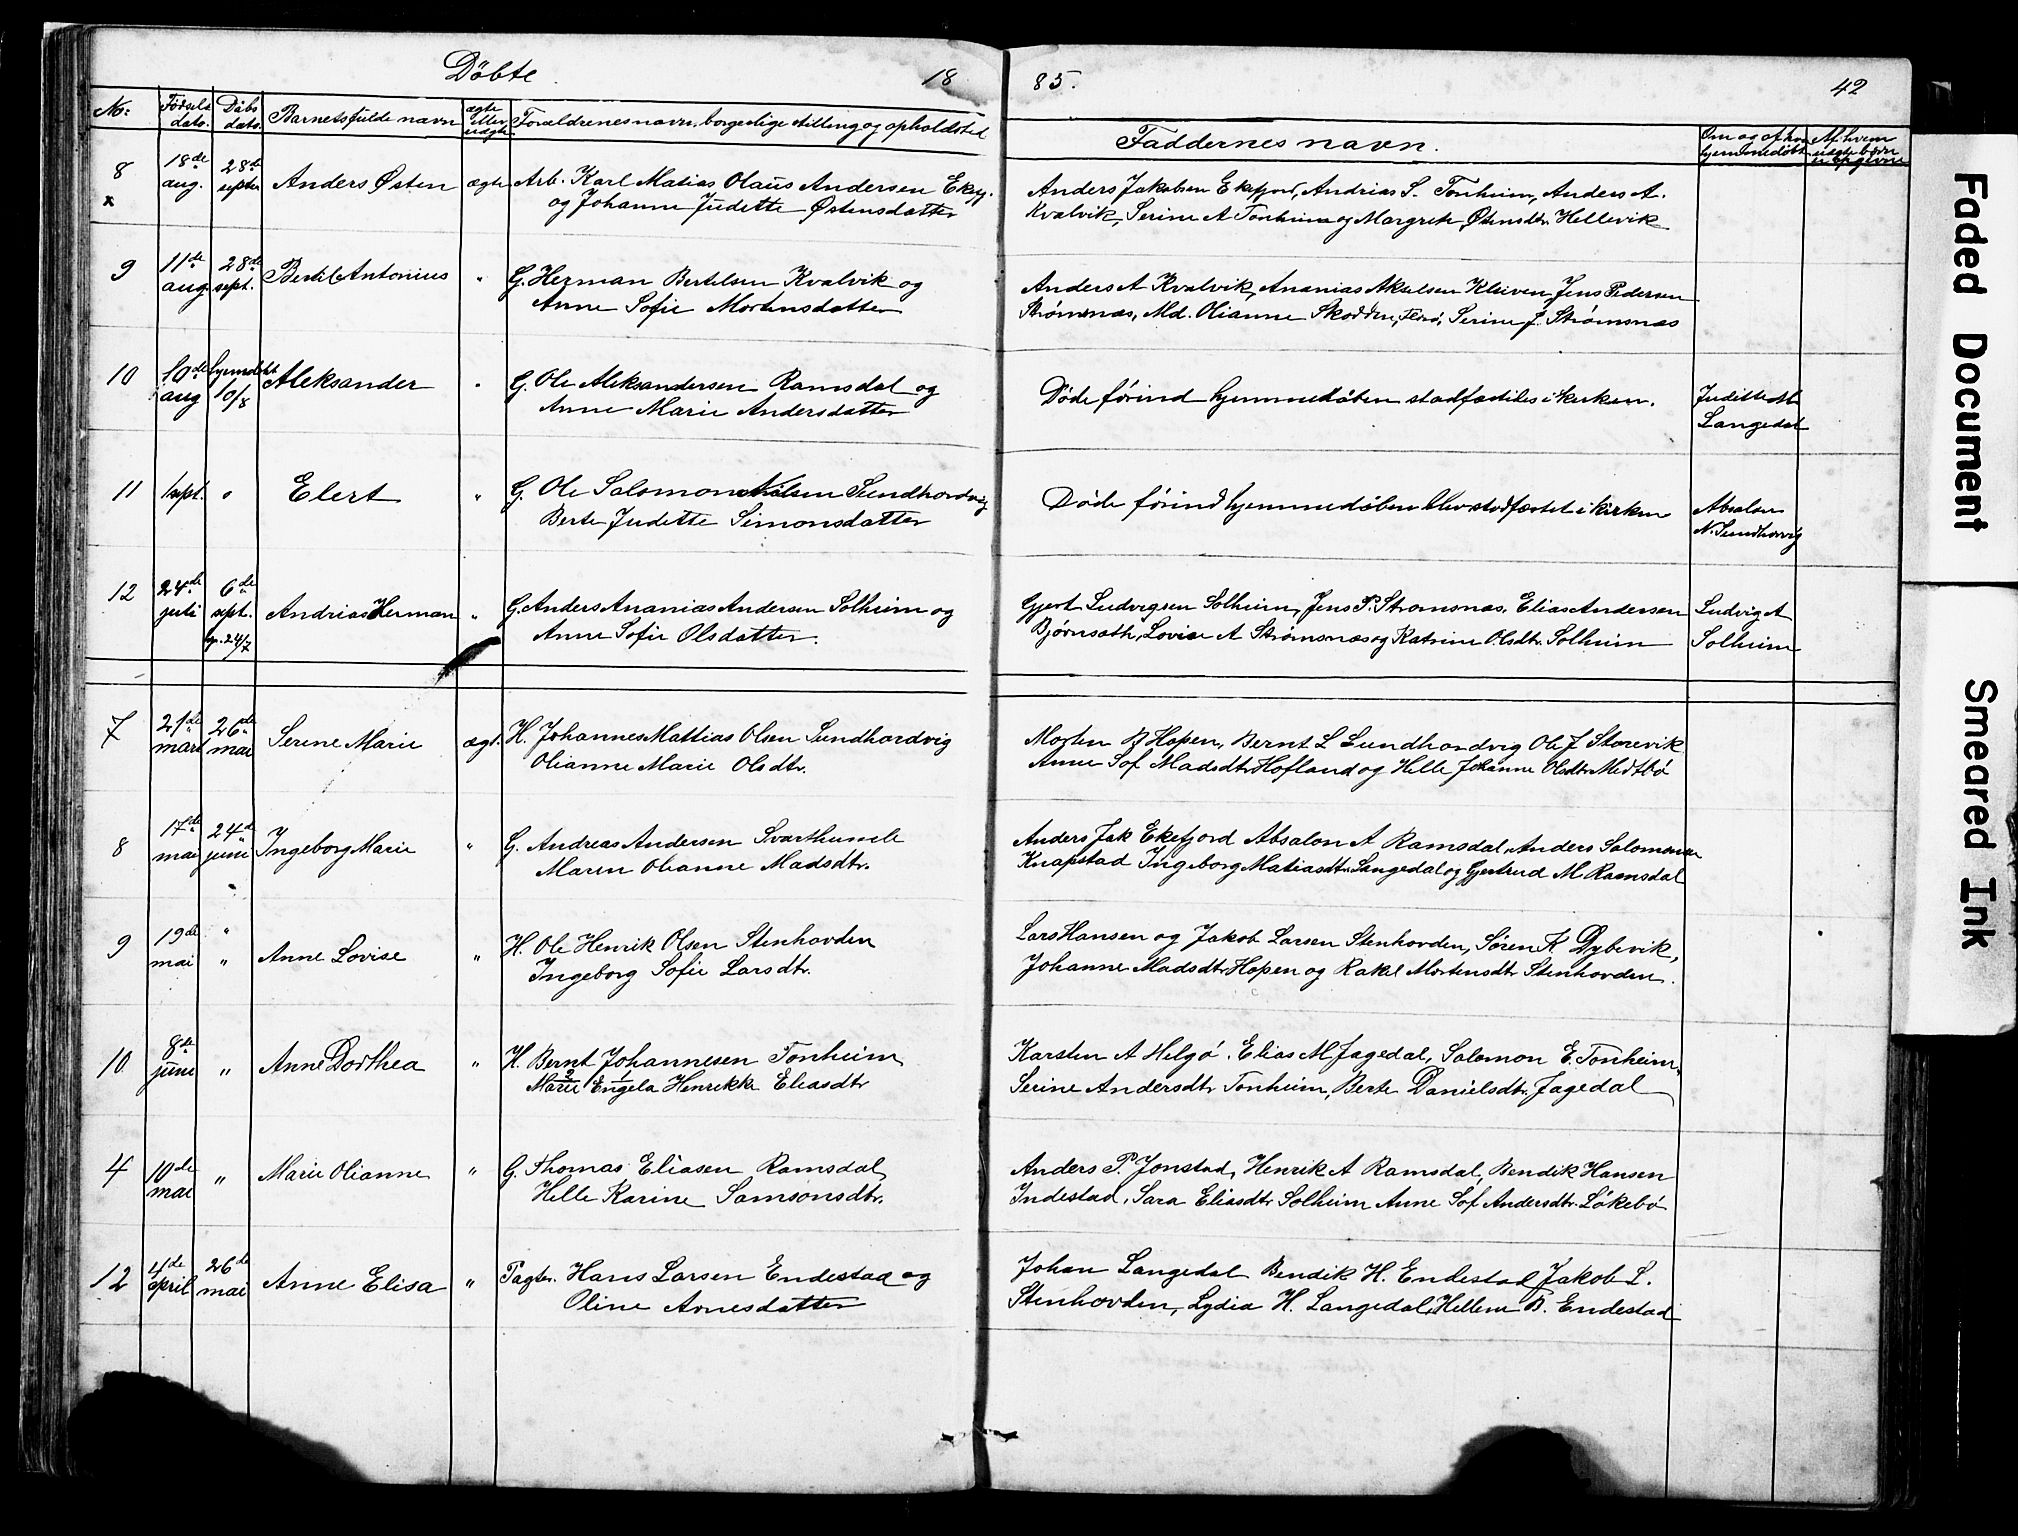 Döbte 1885. 42
No: Födsels dato. Döbs dato. Barnets fulde navn ægte eller uægte Forældrenes navn, borgerlige stilling og opholdsted Faddernes navn. Om og af hvem hjemmedöbt Af hvem uægte børn er opgivne
8 18de aug. 28de septer Anders Østen ægte Arb. Karl Matias Olaus Andersen
og Johanne Judette Østensdatter
Anders Jakobsen Ekefjord, Andrias S. Tonheim, Anders A.
Kvalvik, Serine A Tonheim og Margrete Østensdtr. Hellevik
9 11de aug. 28de sept. Bertil Antonius " G. Herman Bertelsen Kvalvik og
Anne Sofie Mortensdatter
Anders A Kvalvik, Ananias Akselsen Kleiven, Jens Pedersen
Strømsnæs, Md. Olianne Skodden, Florö, Serine J. Strømsnæs
10 10de aug hjemdöbt 10/8 Aleksander " G. Ole Aleksandersen Ramsdal og
Anne Marie Andersdatter
Døde förind hjemmedåben stadfæstedes i kirken. Juditte
Langedal
11 1 sept. " Elert " G. Ole Salomon Nilsen Sundhordvig
Berte Judette Simonsdatter
Døde förind hjemmedåben blev stadfæstet i kirken Absalon
N. Sundhorvig
12 24de juli 6de sept. hj. 24/7 Andrias Herman " G. Anders Ananias Andersen Solheim og
Anne Sofie Olsdatter.
Gjert Ludvigsen Solheim, Jens P. Strømsnæs, Elias Andersen Ludvig A
Bjørnsæth, Lovise A Strømsnæs og Katrine Olsdtr. Solheim Solheim
7 21de mars 26de mai Serine Marie ægt. H. Johannes Mattias Olsen Sundhordvig
Olianne Marie Olsdtr.
Morten B Hopen, Bernt L Sundhordvig Ole J Storevik
Anne Sof. Madsdtr Hofland og Helle Johanne Olsdtr Medtbö
8 17de mai 24de juni Ingeborg Marie " G. Andreas Andersen Svarthumle
Maren Olianne Madsdtr.
Anders Jak Ekefjord Absalon A Ramsdal, Anders Salomonsen
Knapstad Ingeborg Matiasdtr. Langedal og Gjertrud M Ramsdal
9 19de mai " " Anne Lovise " H. Ole Henrik Olsen Stenhovden
Ingeborg Sofie Larsdtr.
Lars Hansen og Jakob Larsen Stenhovden, Søren K Dybevik,
Johanne Madsdtr Hopen og Rakel Mortensdtr Stenhovden.
10 8de juni " Anne Dorthea " H. Bernt Johannesen Tonheim
2 1
Marie Engela Henrikke Eliasdtr
Karsten A Helgö, Elias M Jagedal, Salomon E. Tonheim,
Serine Andersdtr Tonheim, Berte Danielsdtr. Jagedal
4 10de mai " Marie Olianne " G. Thomas Eliasen Ramsdal
Helle Karine Samsonsdtr.
Anders P. Jonstad, Henrik A Ramsdal, Bendik Hansen
Indestad, Sara Eliasdtr Solheim Anne Sof Andersdtr. Lökebö
12 4de april 26de mai Anne Elisa " Pagter. Hans Larsen Endestad og
Oline Arnesdatter
Johan Langedal Bendik H. Endestad Jakob L.
Stenhovden, Lydia H. Langedal, Hellene B. Endestad
Faded Document
Smeared Ink